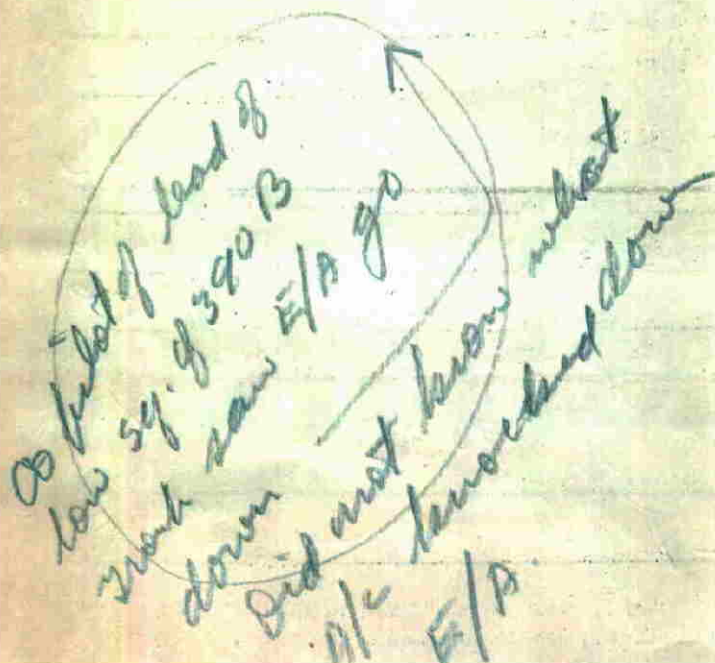 Co pilot of lead of
low sq. of 390 B
Group saw E/A go
down
Did not know what
A/C knocked down
E/A.